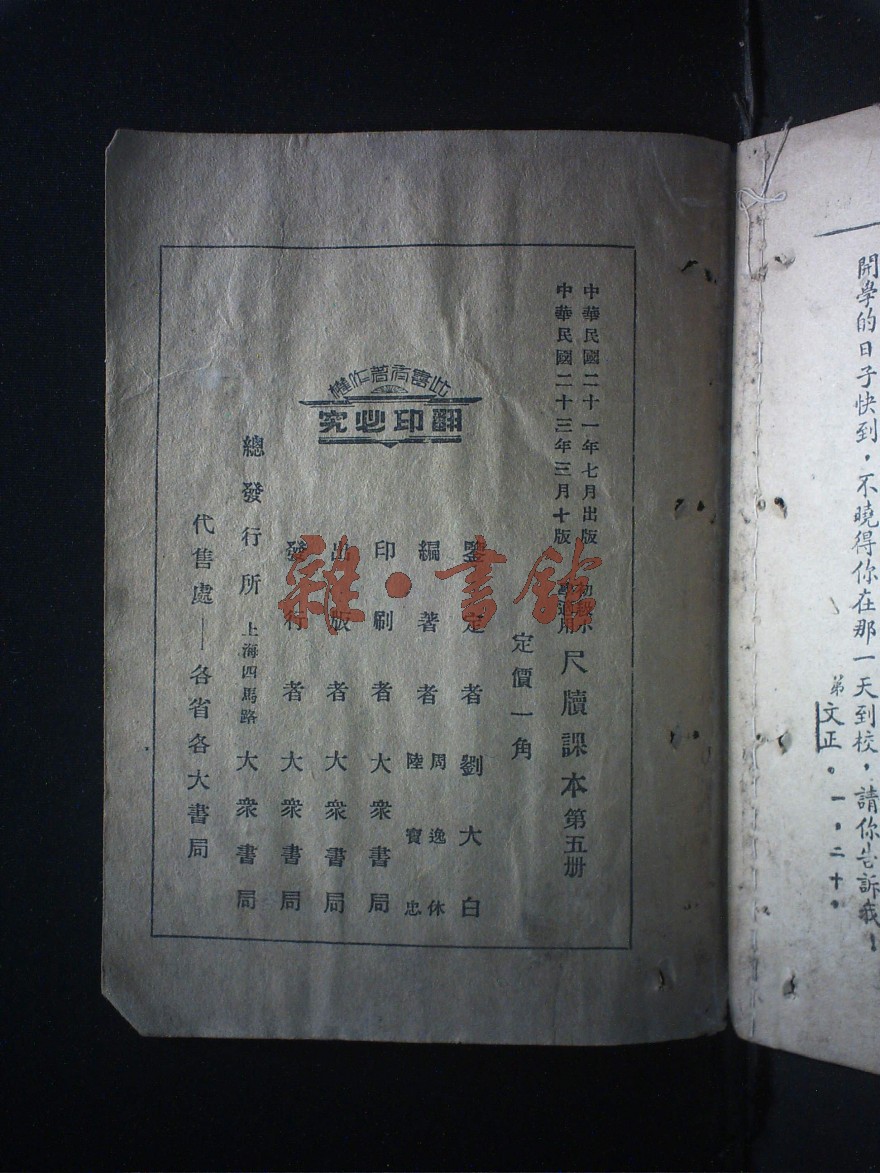 開學的日子快到，不曉得你在那一天到校，請你告訴我！
弟文正。一，二十。
中華民國二十一年七月出版
中華民國二十三年三月十版
初級小學適用 尺牘課本第五册
定價一角
鑒定者 劉大白
編著者 周逸休 陸寶忠
印刷者 大衆書局
出版者 大衆書局
發行者 大衆書局
總發行所 上海四馬路 大衆書局
代售處——各省各大書局
此書有著作權
翻印必究
雜·書館